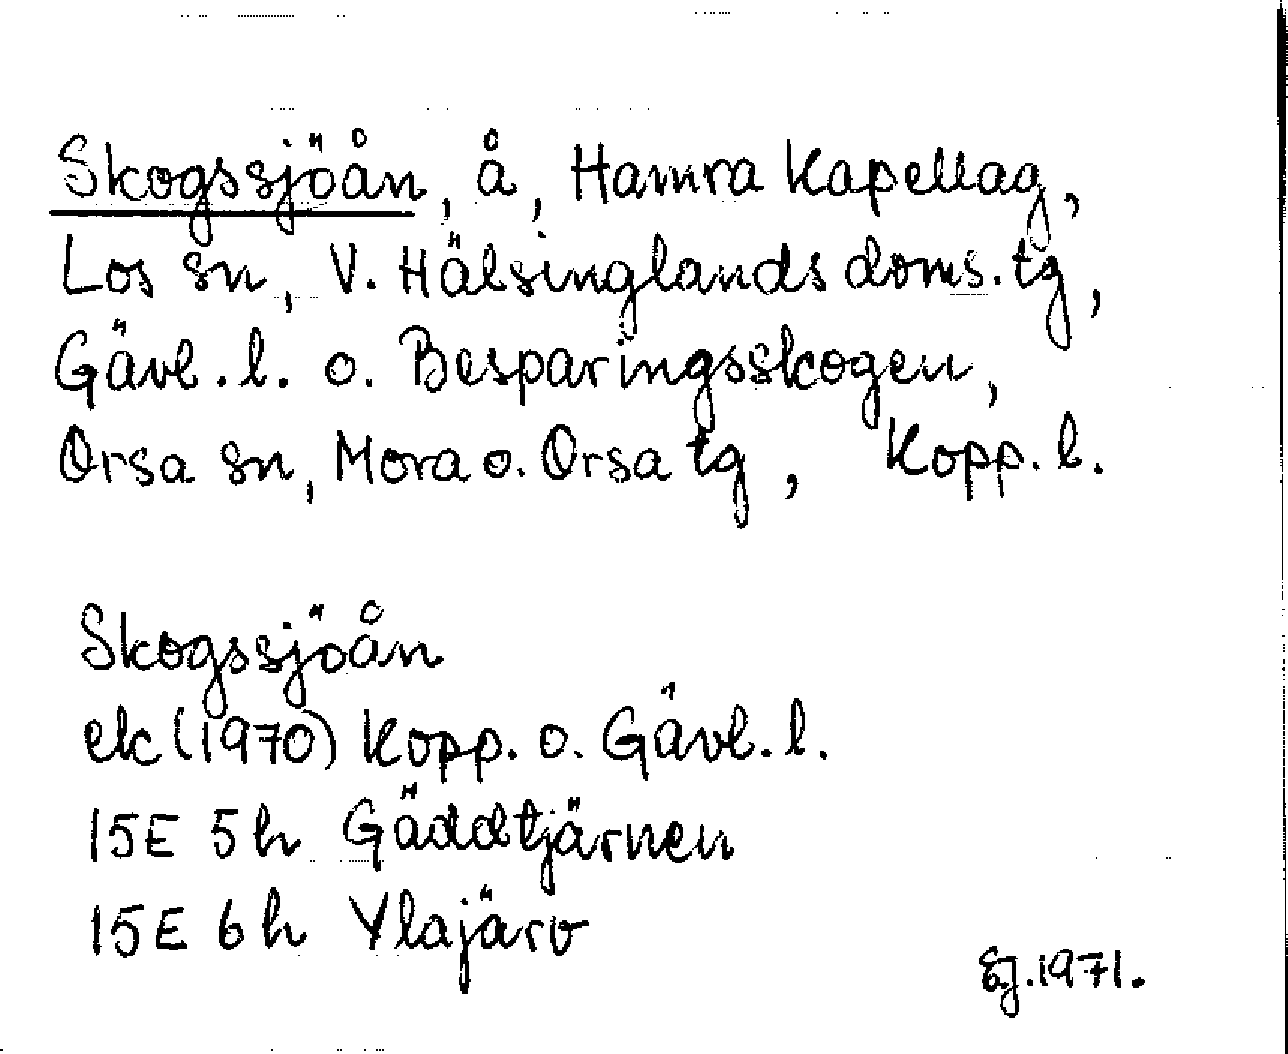 Skogssjöån, å, Hamra Kapellag,
Los sn, V. Hälsinglands doms.tg,
Gävl.l. o. Besparingsskogen,
Orsa sn, Mora o. Orsa tg, Kopp. l.
Skogssjöån
ek (1970) Kopp. o. Gävl. l.
15E 5h Gäddtjärnen
15E 6h Ylajärv
1971.